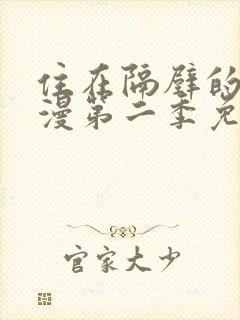 住在隔壁的
漫第二季免
官家大少